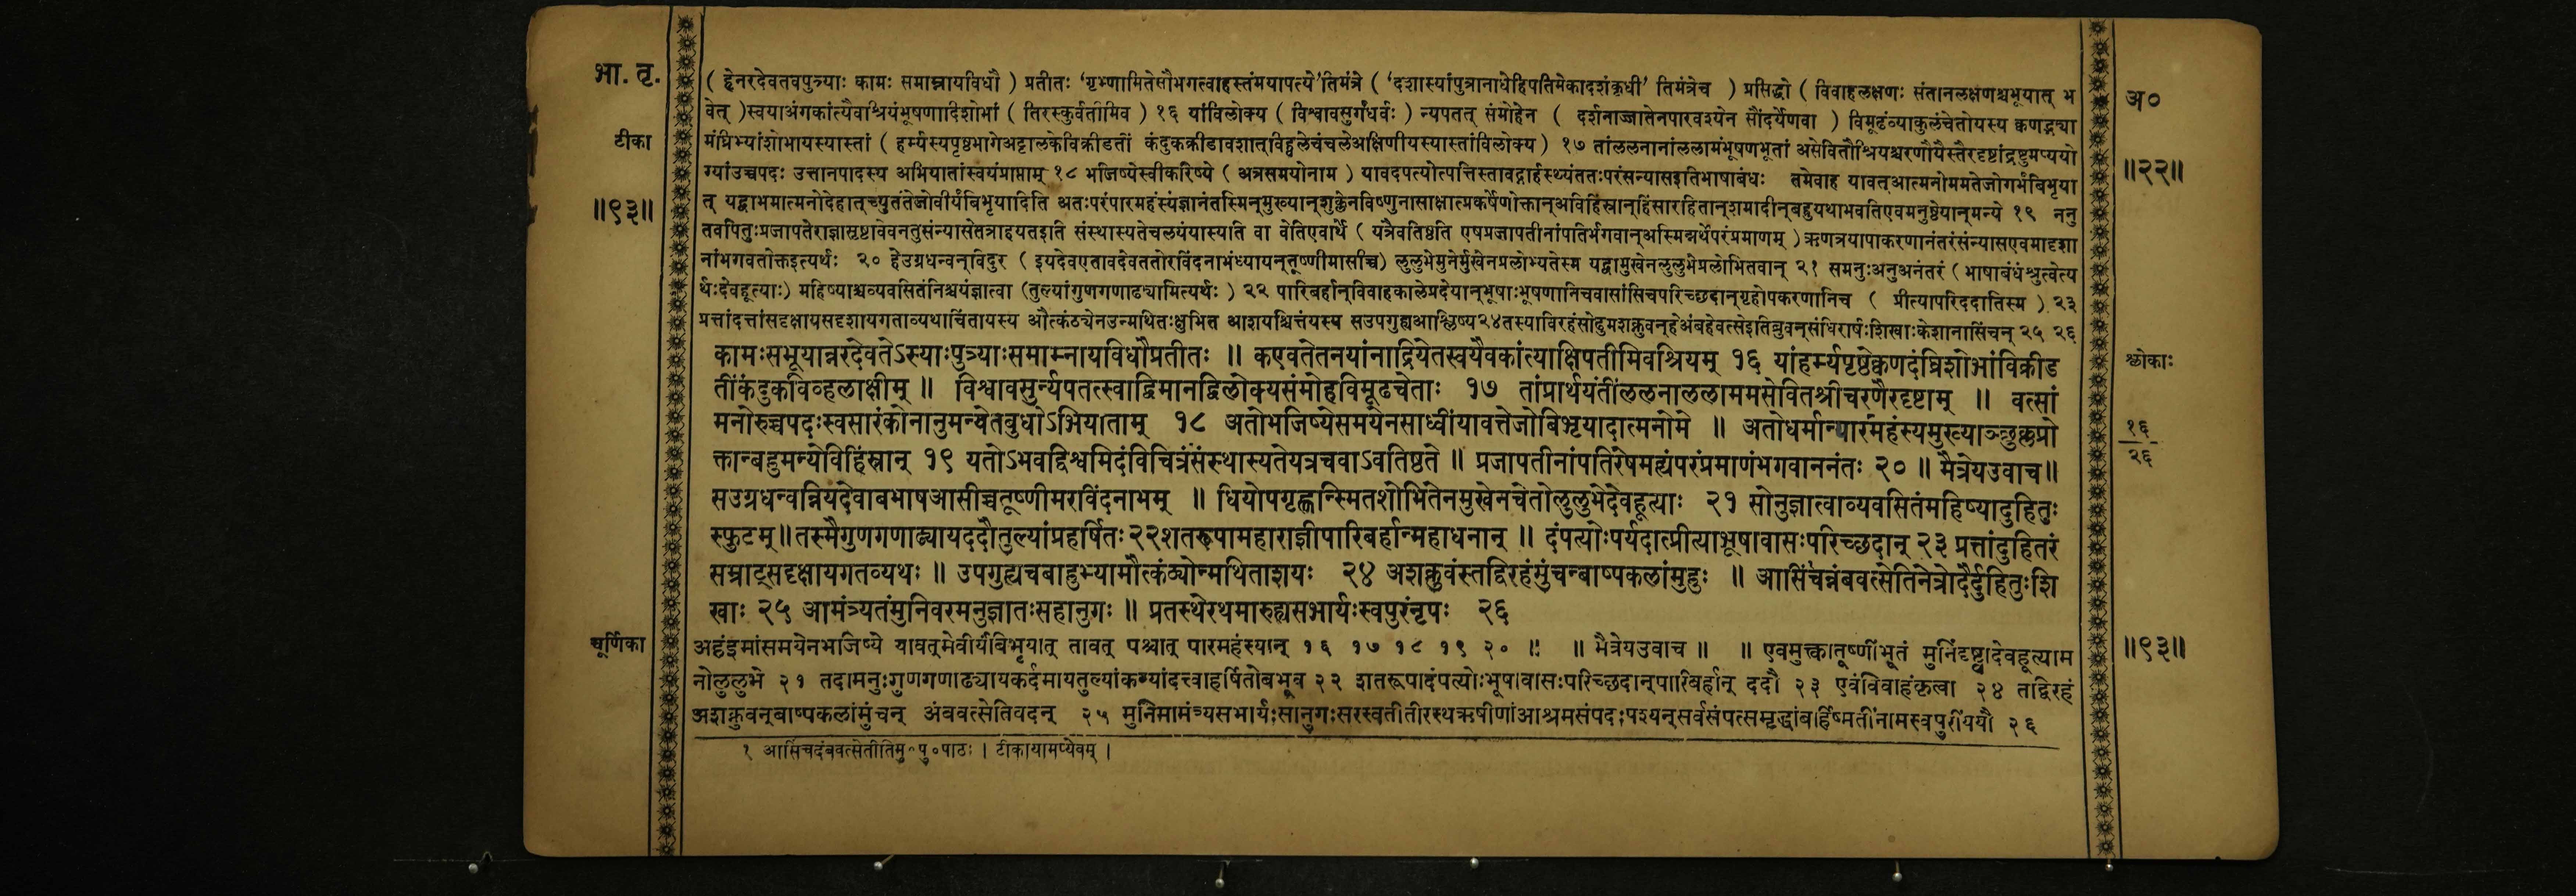 भा. तृ.
( हेनरदेवतवपुत्र्याः कामः समाम्नायविधौ ) प्रतीतः ‘गृभ्णामितेसौभगत्वाहस्तंमयापत्ये’तिमंत्रे ( ‘दशास्यांपुत्रानाधेहिपतिमेकादशंकृधी’ तिमंत्रेच ) प्रसिद्धो ( विवाहलक्षणः संतानलक्षणश्चभूयात् भ
अ०
वेत् )स्वयाअंगकांत्यैवाश्रियंभूषणादिशोभां ( तिरस्कुर्वतीमिव ) १६ यांविलोक्य ( विश्वावसुर्गंधर्वः ) न्यपतत् संमोहेन ( दर्शनाज्जातेनपारवश्येन सौंदर्येणवा ) विमूढंव्याकुलंचेतोयस्य क्वणद्भ्या
टीका
मंघ्रिभ्यांशोभायस्यास्तां ( हर्म्यस्यपृष्ठभागेअट्टालकेविक्रीडतीं कंदुकक्रीडावशात्विह्वलेचंचलेअक्षिणीयस्यास्तांविलोक्य ) १७ तांललनानांललामंभूषणभूतां असेवितौश्रियश्चरणौयैस्तैरदृष्टांद्रष्टुमप्ययो
॥२२॥
ग्यांउच्चपदः उत्तानपादस्य अभियातांस्वयंप्राप्ताम् १८ भजिष्येस्वीकरिष्ये ( अत्रसमयोनाम ) यावदपत्योत्पत्तिस्तावद्गार्हस्थ्यंततःपरंसन्यासइतिभाषाबंधः तमेवाह यावत्आत्मनोममतेजोगर्भंबिभृया
॥९३॥
त् यद्वाभमात्मनोदेहात्च्युतंतेजोवीर्यंबिभृयादिति अतःपरंपारमहंस्यंज्ञानंतस्मिन्मुख्यान्शुक्लेनविष्णुनासाक्षात्प्रकर्षेणोक्तान्अविहिंस्रान्हिंसारहितान्शमादीन्बहुयथाभवतिएवमनुष्ठेयान्मन्ये १९ ननु
तवपितुःप्रजापतेराज्ञासृष्टावेवनतुसंन्यासेतत्राहयतइति संस्थास्यतेचलयंयास्यति वा वेतिएवार्थे ( यत्रैवतिष्ठति एषप्रजापतीनांपतिर्भगवान्अस्मिन्नर्थेपरंप्रमाणम् )ऋणत्रयापाकरणानंतरंसंन्यासएवमादृशा
नांभगवतोक्तइत्यर्थः २० हेउग्रधन्वन्विदुर ( इयदेवएतावदेवततोरविंदनाभंध्यायन्तूष्णीमासीच्च) लुलुभेमुनेर्मुखेनप्रलोभ्यतेस्म यद्वामुखेनलुलुभेप्रलोभितवान् २१ समनुःअनुअनंतरं ( भाषाबंधंश्रुत्वेत्य
र्थःदेवहूत्याः) महिष्याश्चव्यवसितंनिश्चयंज्ञात्वा (तुल्यांगुणगणाढ्यामित्यर्थः ) २२ पारिबर्हान्विवाहकालेप्रदेयान्भूषाःभूषणानिचवासांसिचपरिच्छदान्गृहोपकरणानिच ( प्रीत्यापरिददातिस्म ) २३
प्रत्तांदत्तांसदृक्षायसदृशायगताव्यथाचिंतायस्य औत्कंठ्येनउन्मथितःक्षुभित आशयश्चित्तंयस्य सउपगुह्यआश्लिष्य२४तस्याविरहंसोढुमशक्नुवन्हेअंबहेवत्सेइतिब्रुवन्संधिरार्षःशिखाःकेशानासिंचन् २५ २६
कामःसभूयान्नरदेवतेऽस्याःपुत्र्याःसमाम्नायविधौप्रतीतः ॥ कएवतेतनयांनाद्रियेतस्वयैवकांत्याक्षिपतीमिवश्रियम् १६ यांहर्म्यपृष्ठेक्वणदंघ्रिशोभांविक्रीड
श्लोकाः
तींकंदुकविव्हलाक्षीम् ॥ विश्वावसुर्न्यपतत्स्वाद्विमानद्विलोक्यसंमोहविमूढचेताः १७ तांप्रार्थयंतींललनाललाममसेवितश्रीचरणैरदृष्टाम् ॥ वत्सां
मनोरुच्चपदःस्वसारंकोनानुमन्येतबुधोऽभियाताम् १८ अतोभजिष्येसमयेनसाध्वींयावत्तेजोबिभृयादात्मनोमे ॥ अतोधर्मान्पारमहंस्यमुख्याञ्च्छुक्लप्रो
१६
२६
क्तान्बहुमन्येविहिंस्रान् १९ यतोऽभवद्विश्वमिदंविचित्रंसंस्थास्यतेयत्रचवाऽवतिष्ठते ॥ प्रजापतीनांपतिरेषमह्यंपरंप्रमाणंभगवाननंतः २० ॥ मैत्रेयउवाच॥
सउग्रधन्वन्नियदेवाबभाषआसीच्चतूष्णीमरविंदनाभम् ॥ धियोपगृह्णन्स्मितशोभितेनमुखेनचेतोलुलुभेदेवहूत्याः २१ सोनुज्ञात्वाव्यवसितंमहिष्यादुहितुः
स्फुटम्॥तस्मैगुणगणाढ्यायददौतुल्यांप्रहर्षितः२२शतरूपामहाराज्ञीपारिबर्हान्महाधनान् ॥ दंपत्योःपर्यदात्प्रीत्याभूषावासःपरिच्छदान् २३ प्रत्तांदुहितरं
सम्राट्सदृक्षायगतव्यथः ॥ उपगुह्यचबाहुभ्यामौत्कंठ्योन्मथिताशयः २४ अशक्नुवंस्तद्विरहंमुंचन्बाष्पकलांमुहुः ॥ आसिं१चन्नंबवत्सेतिनेत्रोदैर्दुहितुःशि
खाः २५ आमंत्र्यतंमुनिवरमनुज्ञातःसहानुगः ॥ प्रतस्थेरथमारुह्यसभार्यःस्वपुरंनृपः २६
चूर्णिका
अहंइमांसमयेनभजिष्ये यावत्मेवीर्यंबिभृयात् तावत् पश्चात् पारमहंस्यान् १६ १७ १८ १९ २० ॥ ॥ मैत्रेयउवाच ॥ ॥ एवमुक्त्कातूष्णींभूतं मुनिंदृष्ट्वादेवहूत्याम
॥९३॥
नोलुलुभे २१ तदामनुःगुणगणाढ्यायकर्दमायतुल्यांकन्यांदत्त्वाहर्षितोबभूव २२ शतरूपादंपत्योःभूषावासःपरिच्छदान्पारिबर्हान् ददौ २३ एवंविवाहंकृत्वा २४ तद्विरहं
अशक्नुवन्बाष्पकलांमुंचन् अंबवत्सेतिवदन् २५ मुनिमामंत्र्यसभार्यःसानुगःसरस्वतीतीरस्थऋषीणांआश्रमसंपदःपश्यन्सर्वसंपत्समृद्धांबर्हिष्मतींनामस्वपुरींययौ २६
१ आसिंचदंबवत्सेतीतिमु०पु०पाठः । टीकायामप्येवम् ।